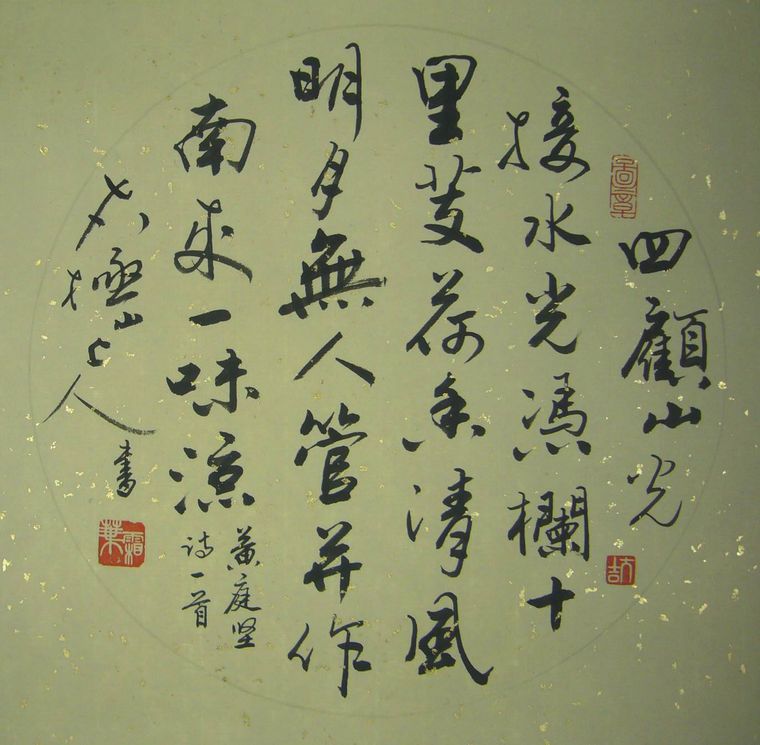 四顧山光
接水光憑欄十
里芰荷香清風
明月無人管并作
南来一味涼
黄庭坚
诗一首
極山上人書
霜葉